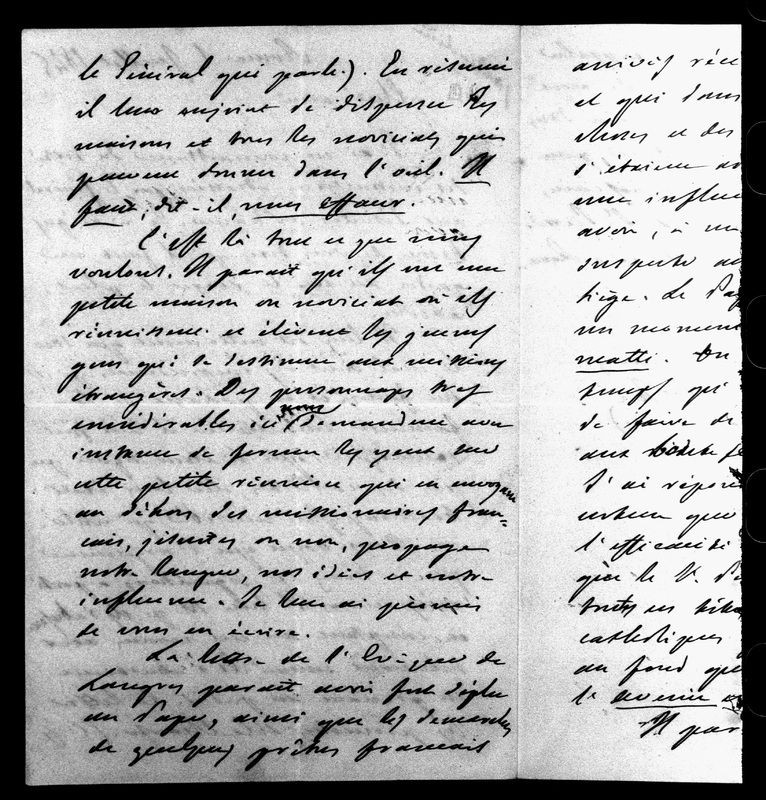 le Général qui parle). En résumé
il leur enjoint de disperser les
maisons et tous les noviciats qui
peuvent donner dans l'œil. Il
faut, dit-il, nous effacer.
C'est là tout ce que nous
voulons. Il paraît qu'ils ont une
petite maison ou noviciat où ils
réunissent et élèvent les jeunes
gens qui se destinent aux missions
étrangères. Des personnages très
considérables ici nous demandent avec
instance de fermer les yeux sur
cette petite réunion qui en envoyant
au dehors des missionnaires fran=
cais, jésuites ou non, propage
notre langue, nos idées et notre
influence. Je leur ai promis
de vous en écrire.
La lettre de l'Evêque de
Langres paraît avoir fort déplu
au Pape, ainsi que les demarches
de quelques prêtres francais
arrivés réce
et qui dans
choses et des
s'étaient
une influen
avoir, à un
suspecte au
siège. Le Pap
un moment
matti.
temps qui
de faire de
aux
J'ai répon
que
l'efficacité
que le V. Pe
toutes les
catholiques
au fond que
l'avenir
Il par